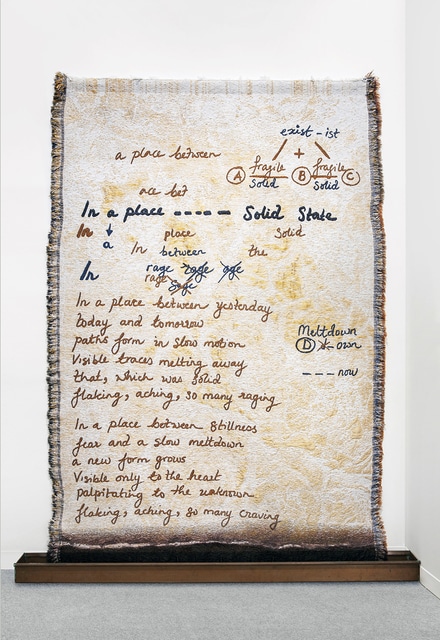 exist - ist
a place between
+
fragile fragile
A solid B solid C
ace bet
In a place ----- Solid State
In place Solid
a In between the
In rage rage age
rage
In a place between yesterday
today and tomorrow
paths form in slow motion
Visible traces melting away
that, which was solid
flaking, aching, so many raging
Meltdown
D own
--- now
In a place between stillness
fear and a slow meltdown
a new form grows
Visible only to the heart
palpitating to the unknown
flaking, aching, so many craving